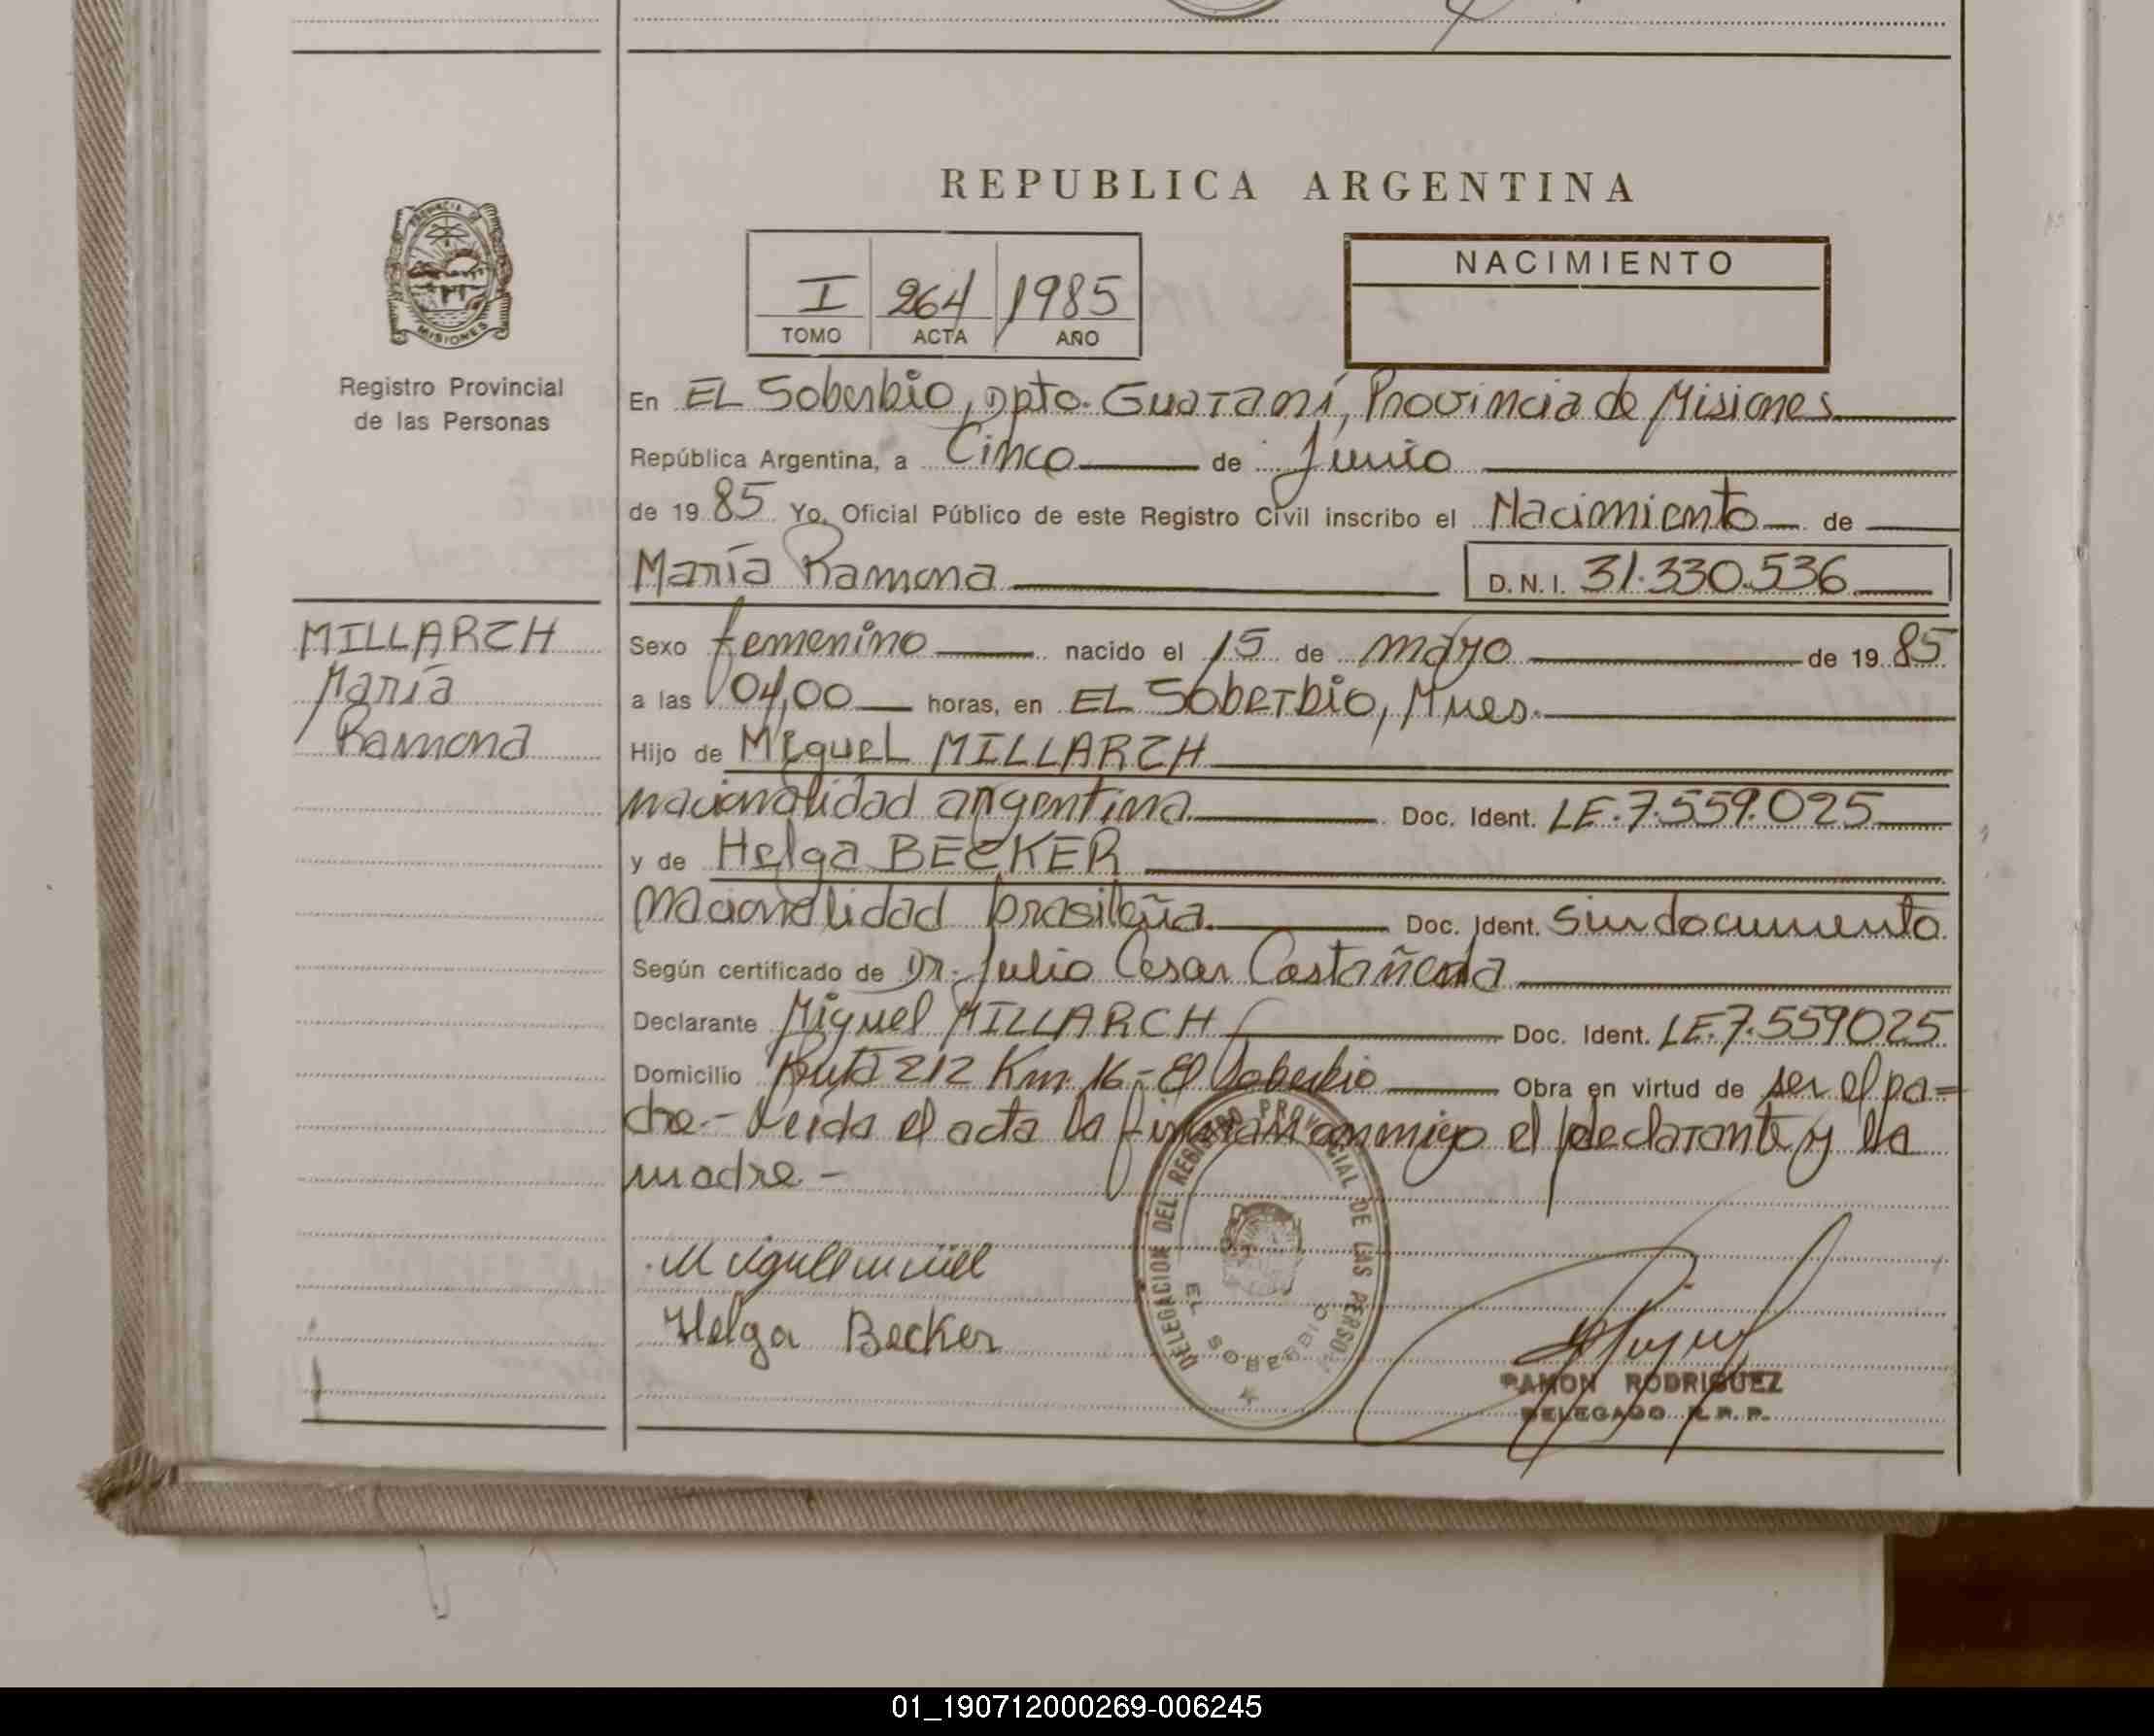 REPUBLICA ARGENTINA
I 264 1985
TOMO ACTA AÑO
NACIMIENTO
Registro Provincial
de las Personas
En EL Soberbio, Dpto. Guaraní, Provincia de Misiones
República Argentina, a Cinco de Junio
de 1985 Yo, Oficial Público de este Registro Civil inscribo el Nacimiento de
María Ramona D.N.I. 31.330.536
MILLARCH
María
Ramona
Sexo femenino nacido el 15 de mayo de 1985
a las 04,00 horas, en EL Soberbio, Mnes.
Hijo de Miguel MILLARCH
nacionalidad argentina Doc. Ident. LE.7.559.025
y de Helga BECKER
nacionalidad brasileña. Doc. Ident. Sin documento
Según certificado de Dr. Julio Cesar Castañeda
Declarante Miguel MILLARCH Doc. Ident. LE.7.559025
Domicilio Ruta 212 Km 16 - El Soberbio Obra en virtud de ser el pa-
dre.- Leida el acta la firman conmigo el declarante y la
madre -
Helga Becker
DELEGACION DEL REGISTRO PROVINCIAL DE LAS PERSO
EL SOBERBIO
RAMON RODRIGUEZ
DELEGADO R. P. P.
01_190712000269-006245